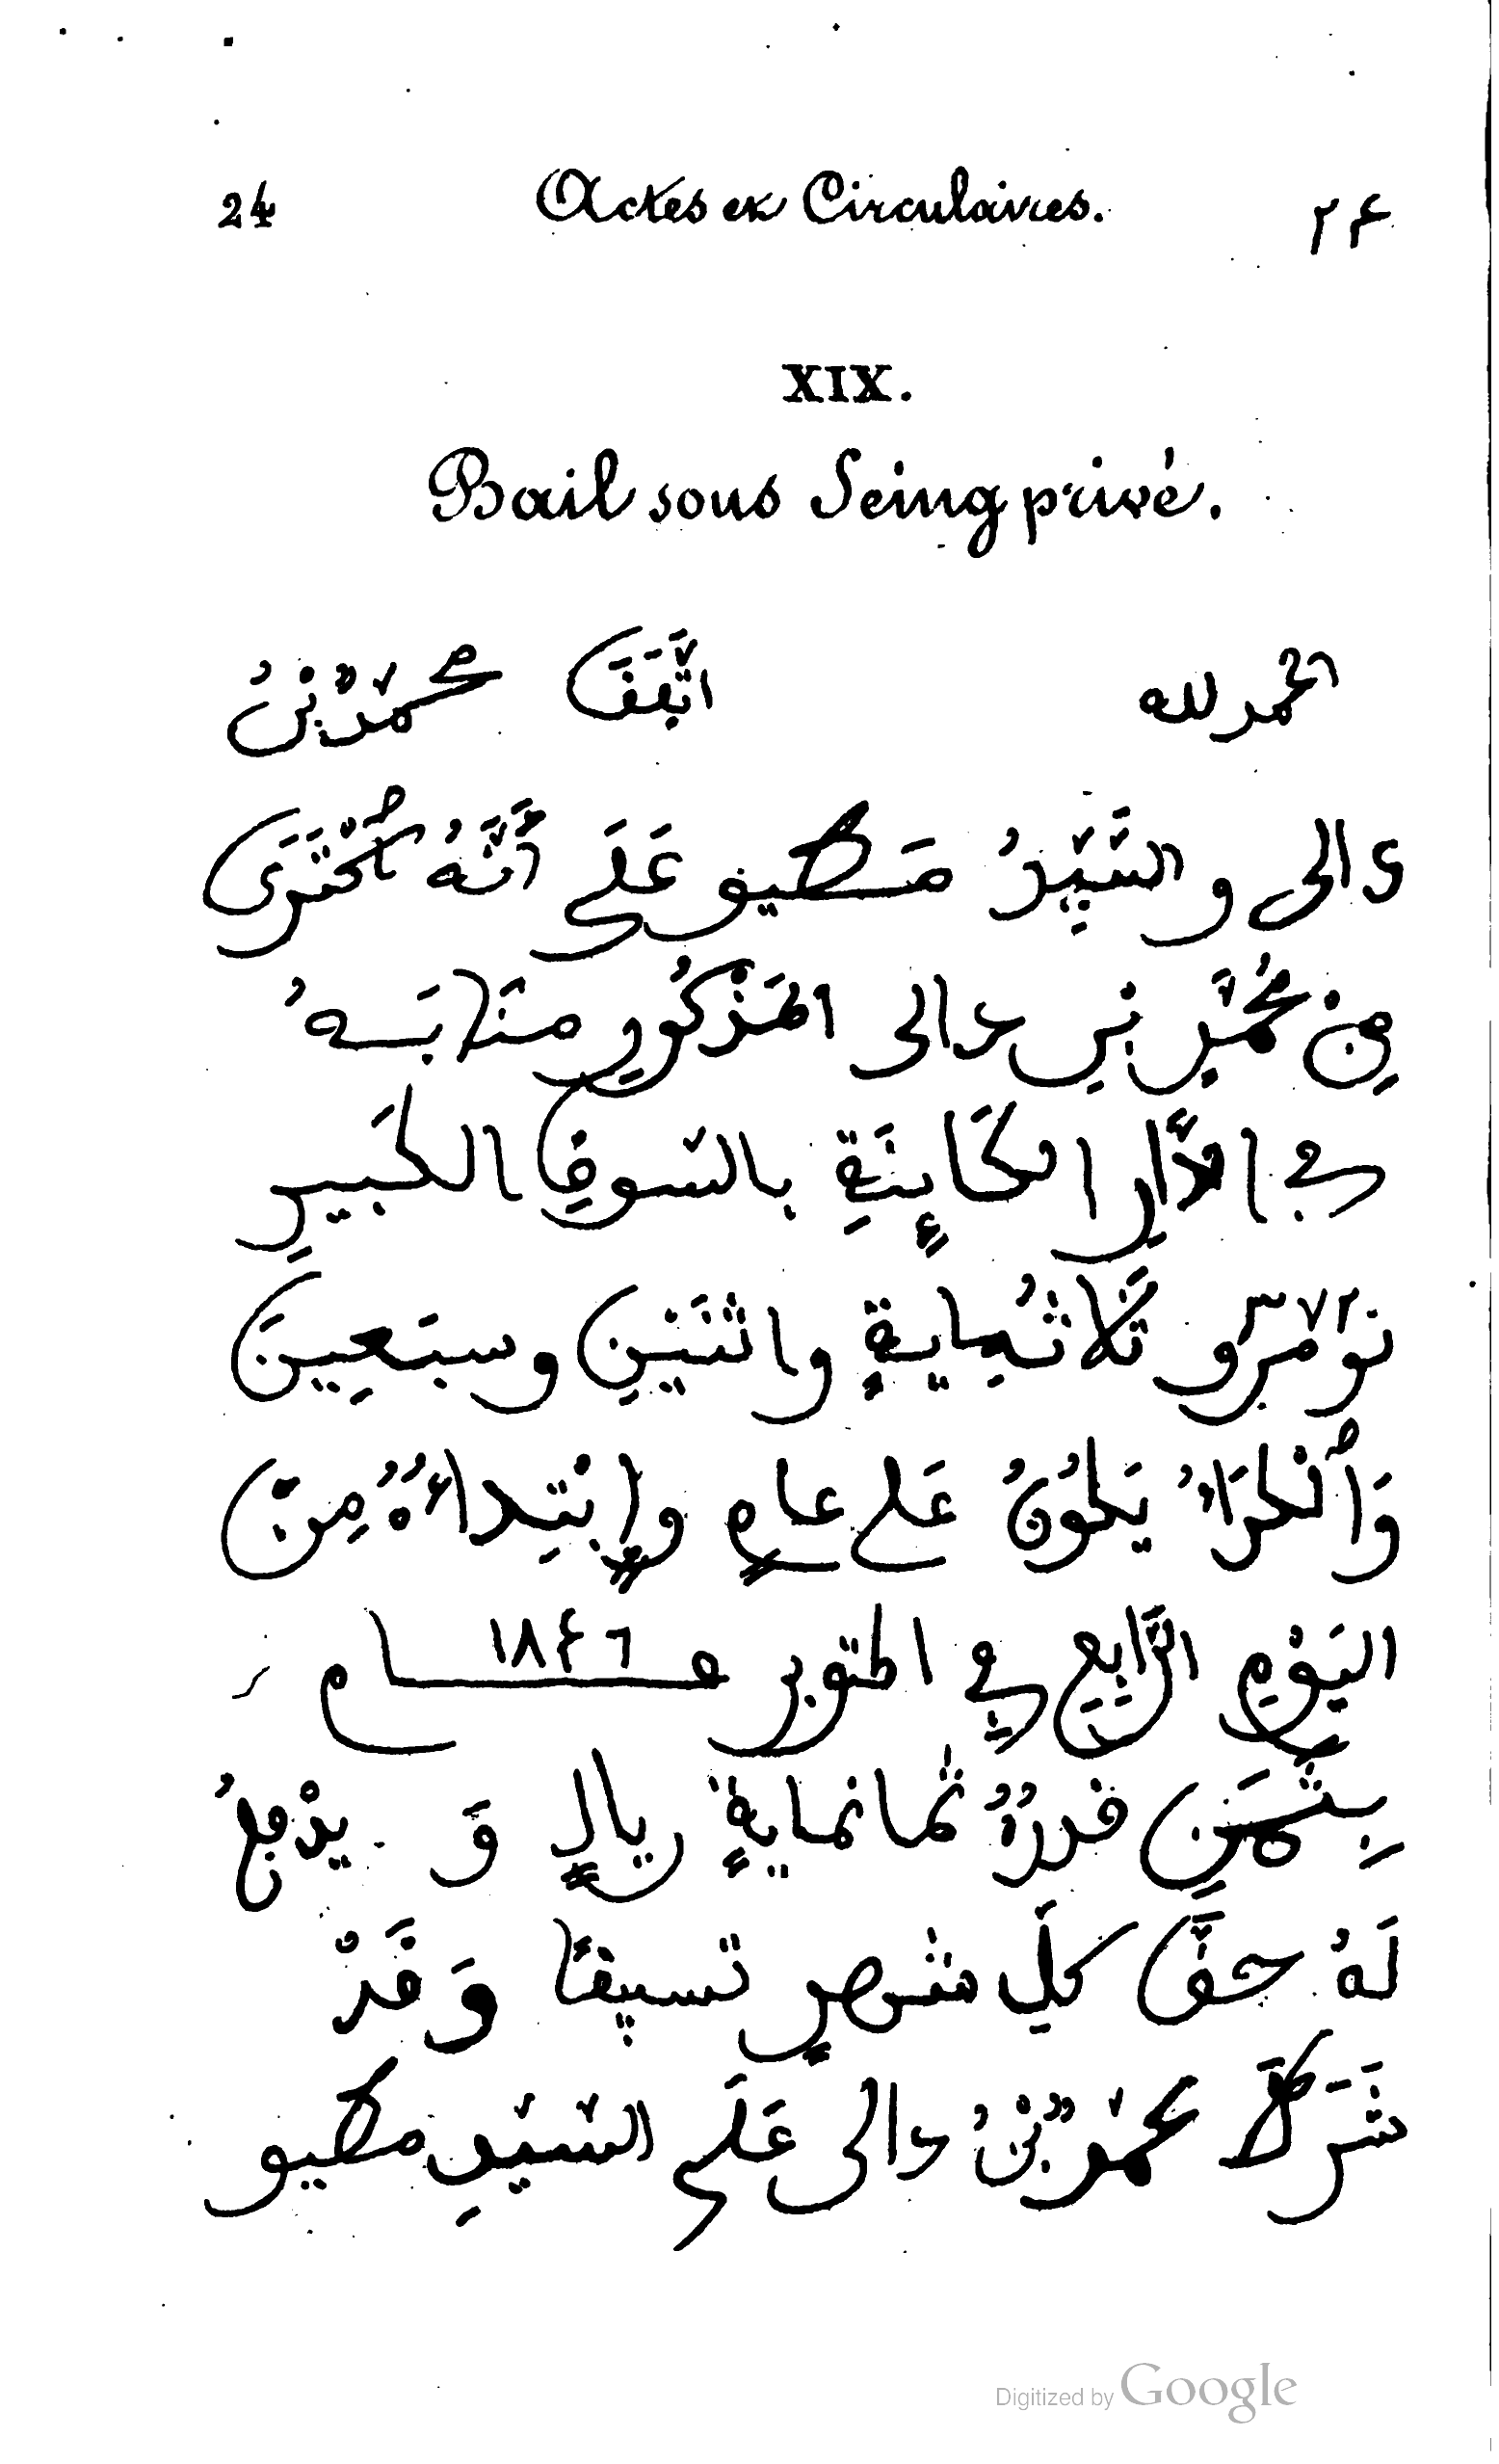 24 Actes et Circulaires. ٢٤
XIX.
Bail sous Seing privé.
الحمد لله اتَّفَقَ محمّدٌ بْنُ
عالى والسَّيِّدُ مَطيو عَلَى أَنَّهُ اُكْتَرَى
مِن مُحَمَّدِ بْنِ عالى المَذْكُورِ مِنَابَهُ
في الدَّارِ الكَايِنَةِ بالسّوقِ الكَبير
نومرو ٣٧٢ ثَلَاثُمِايةٍ واثنَيْنِ وسبَعِينَ
وَاُلْكِرَاءُ يَكُونُ عَلى عامٍ وإِبْتِداءُهُ مِنَ
اليَوْمِ الرَّابِعِ فِي اكتوبر عـام ١٨٤٦
بِثَمَنٍ قدرُهُ ثمانمايةٍ ريالٍ وَ يدْفعُ
لَهُ حقَّ كلِّ شهرٍ تسبيقًا وَقَدْ
شَرَطَ محمّدٌ بْنُ عالى عَلَى السّيّدِ مطيو
Digitized by Google